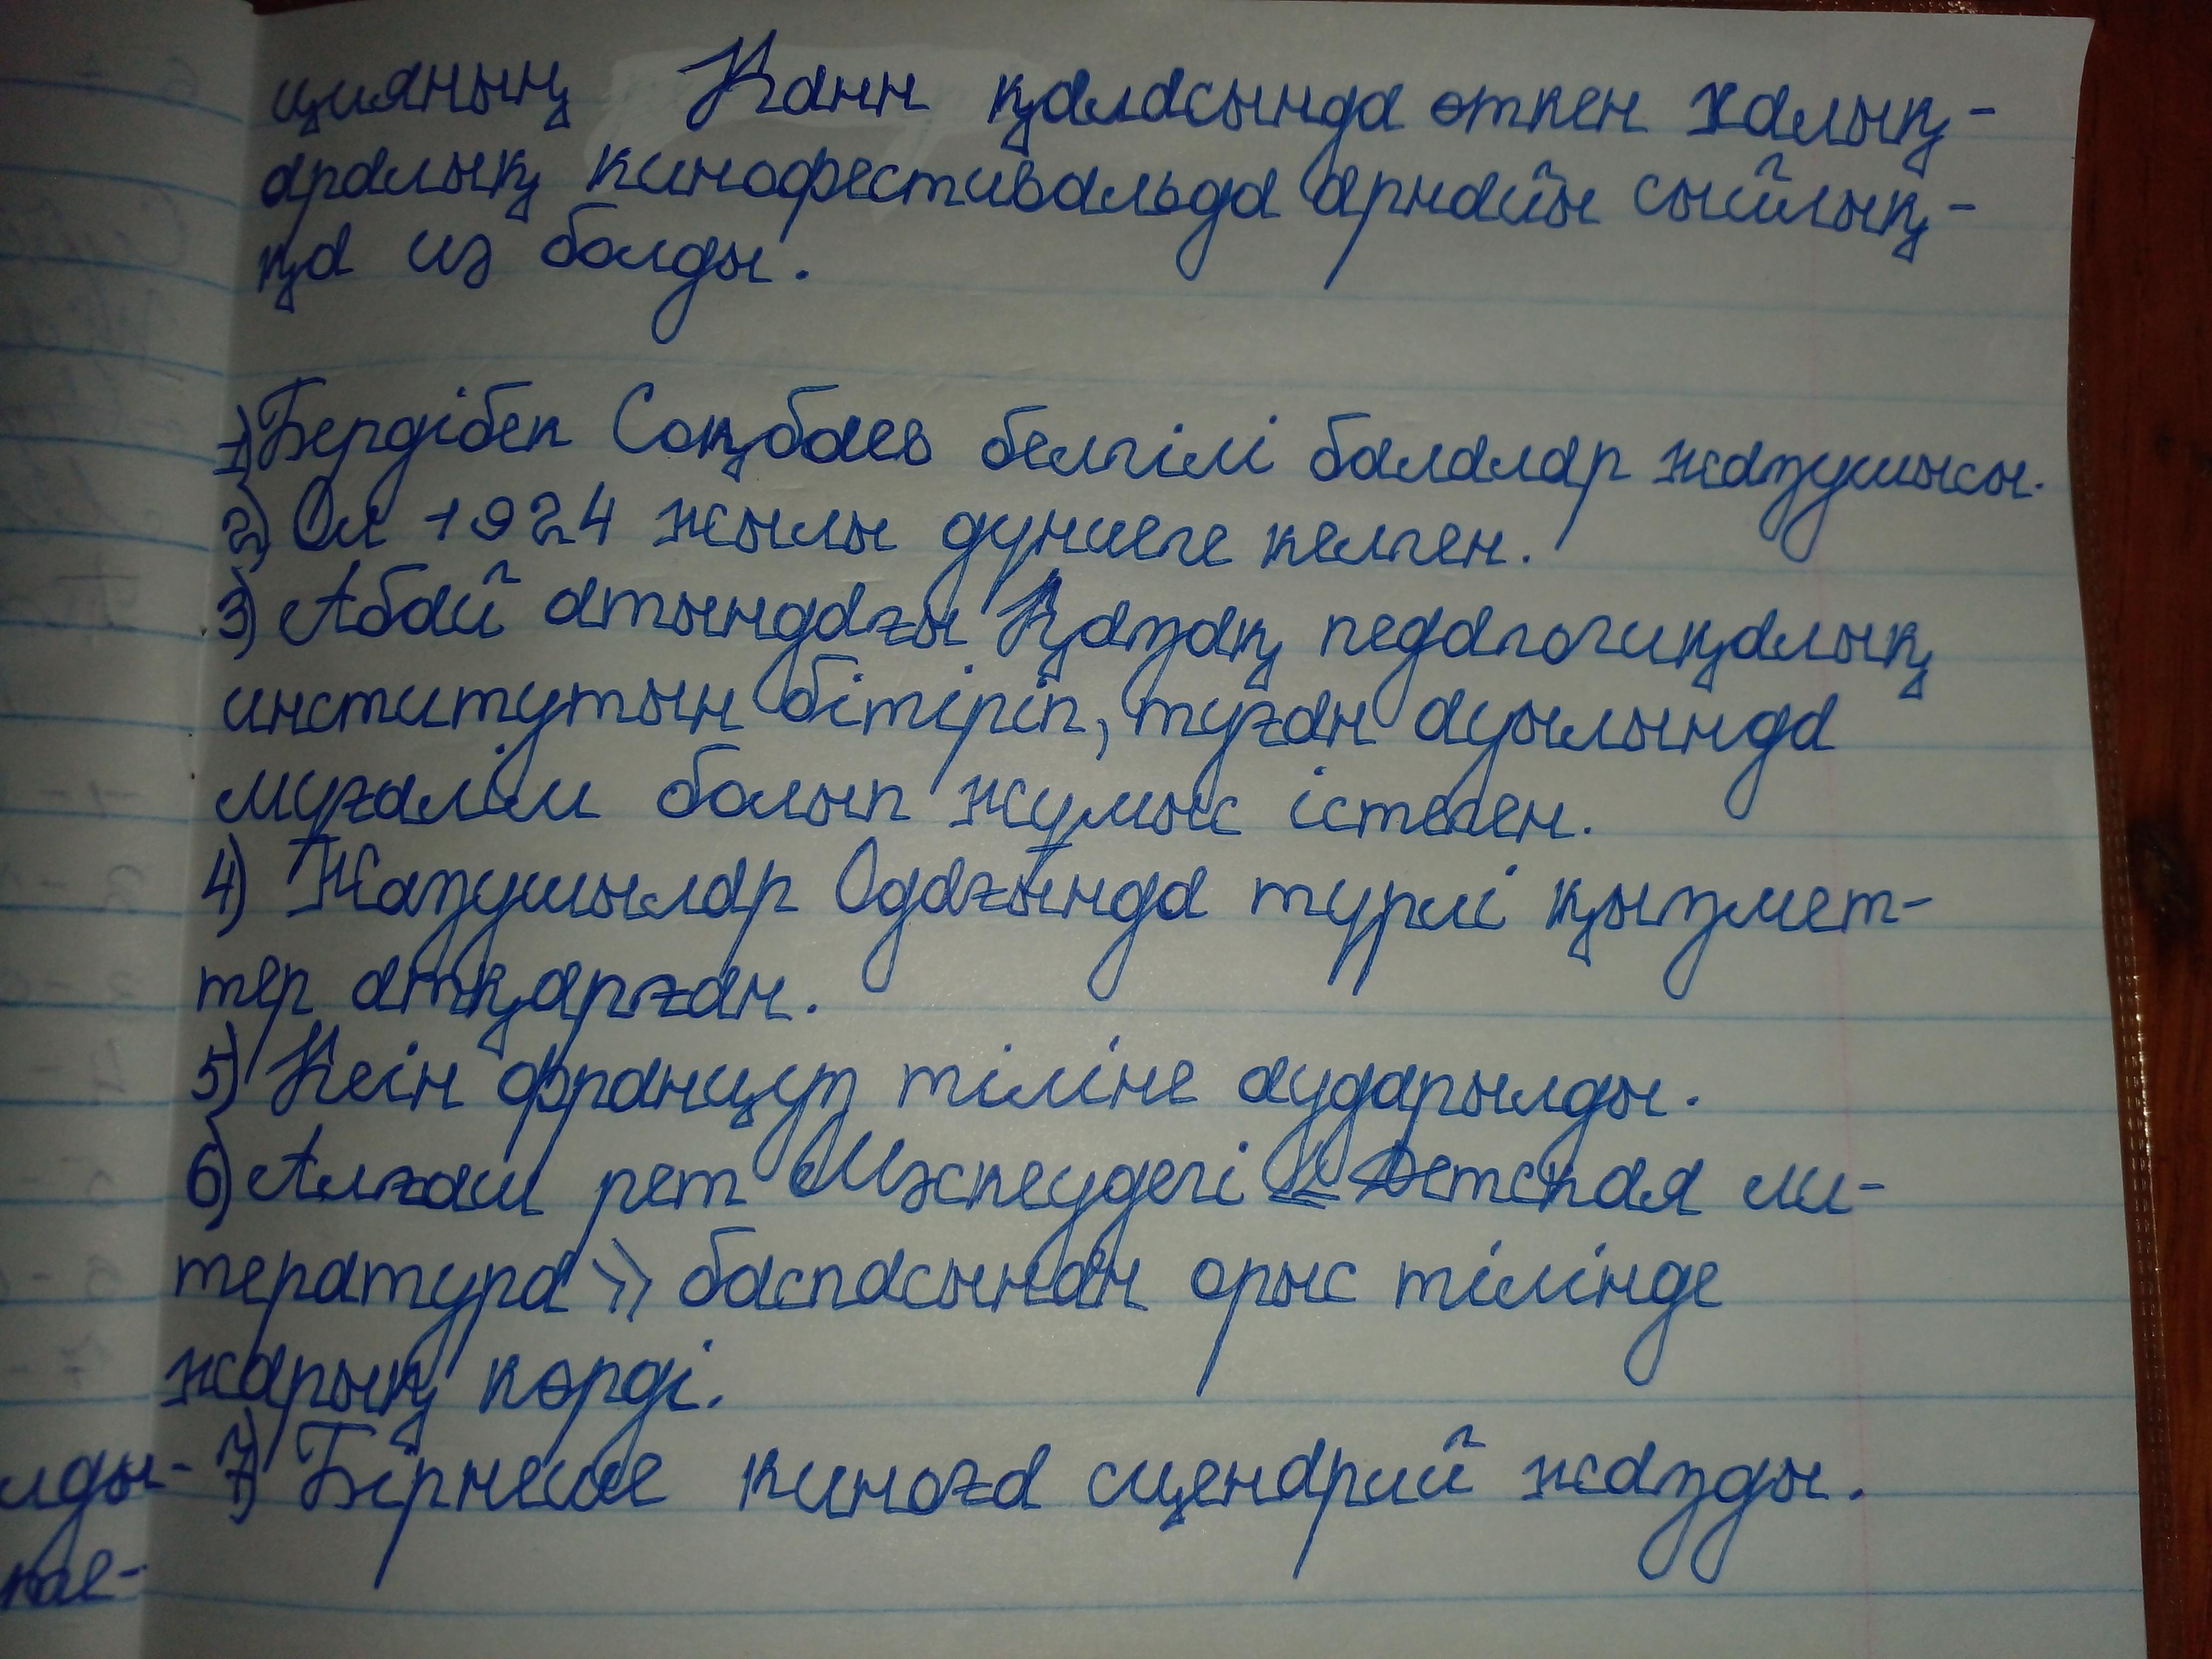 цияның Канн қаласында өткен халық-
аралық кинофестивальда арнайы сыйлық-
қа из болды.
1) Бердібек Соқбаев белгілі балалар жазушысы.
2) Ол 1924 жылы дүниеге келген.
3) Абай атындағы Қазақ педагогикалық
институтын бітіріп, туған ауылында
мұғалім болып жұмыс істеген.
4) Жазушылар Одағында түрлі қызмет-
тер атқарған.
5) Кеін француз тіліне аударылды.
6) Алғаш рет Мәскеудегі « Детская ли-
тература» баспасынан орыс тілінде
жарық көрді.
лды- 7) Бірнеше киноға сценарий жазды.